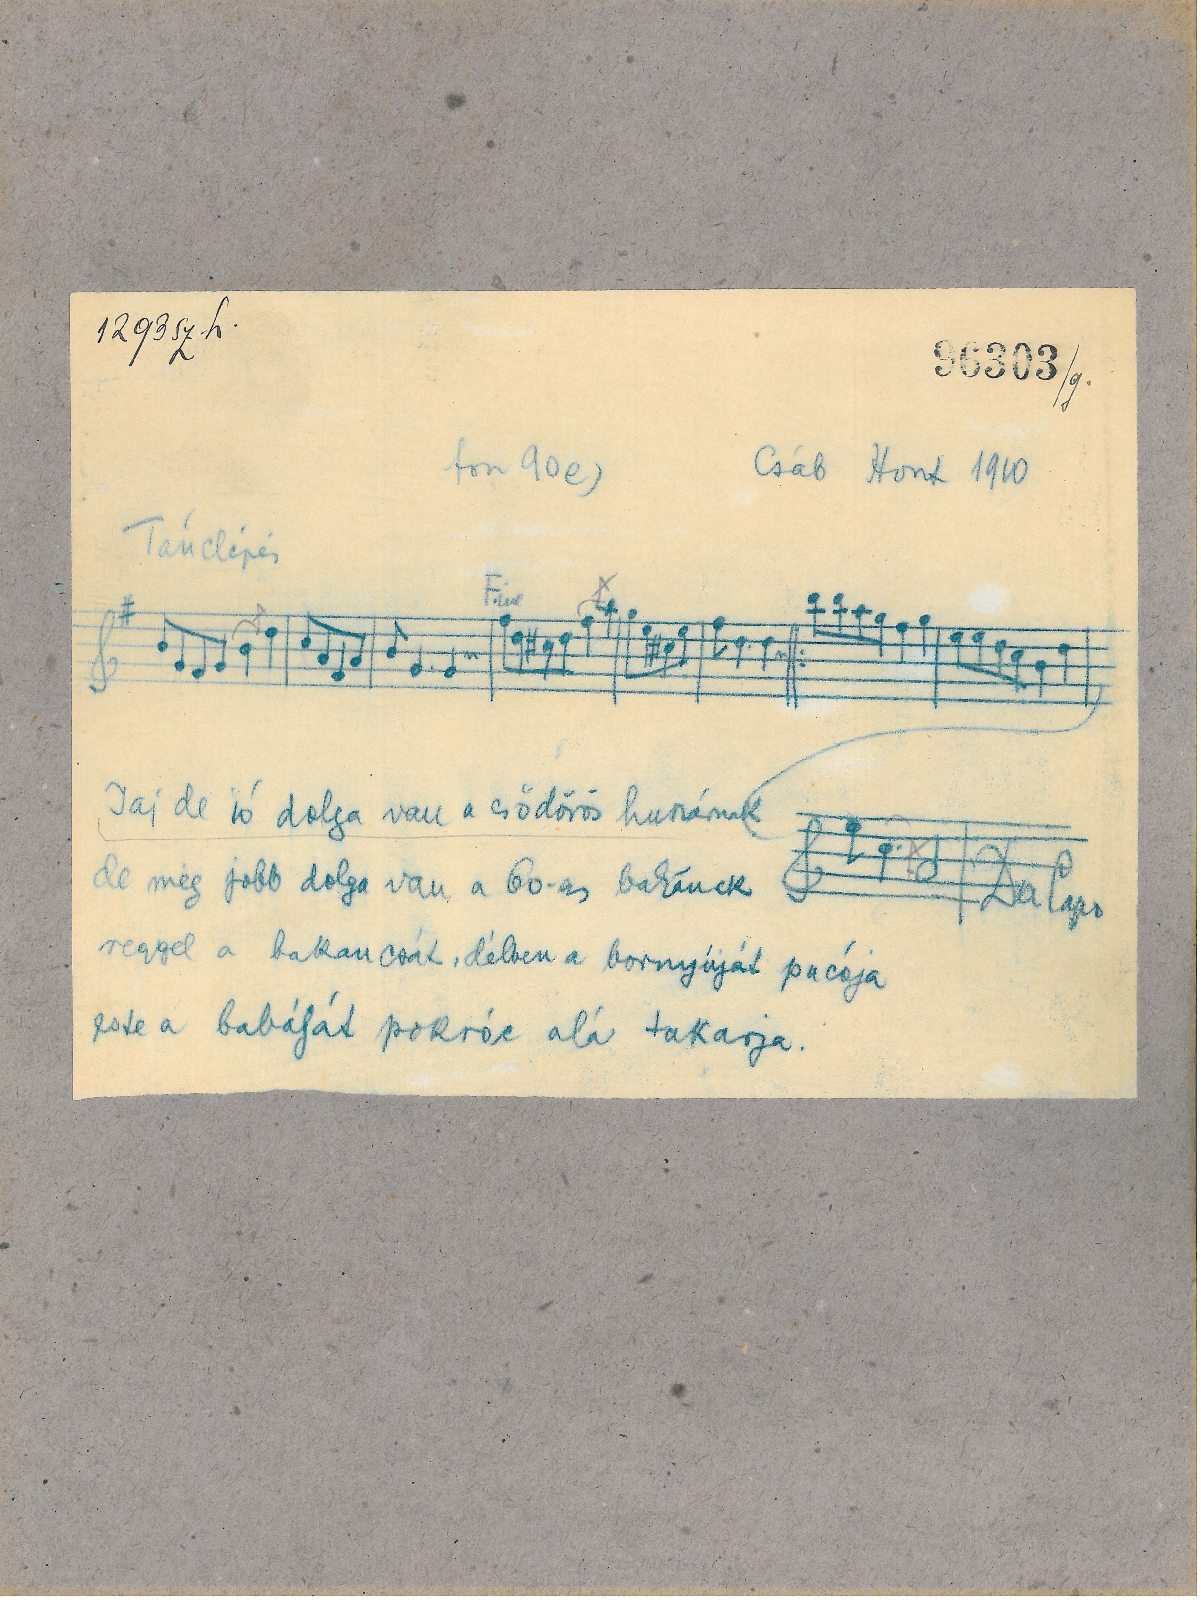 1293 sz. h.
96303/g.
fon 90e) Csáb Hont 1910
Tánclépés
Fine
Jaj de jó dolga van a csődörös huszárnak
de még jobb dolga van a 60-as bakának
reggel a bakancsát, délben a bornyúját pucója
este a babáját pokróc alá takarja.
Da Capo